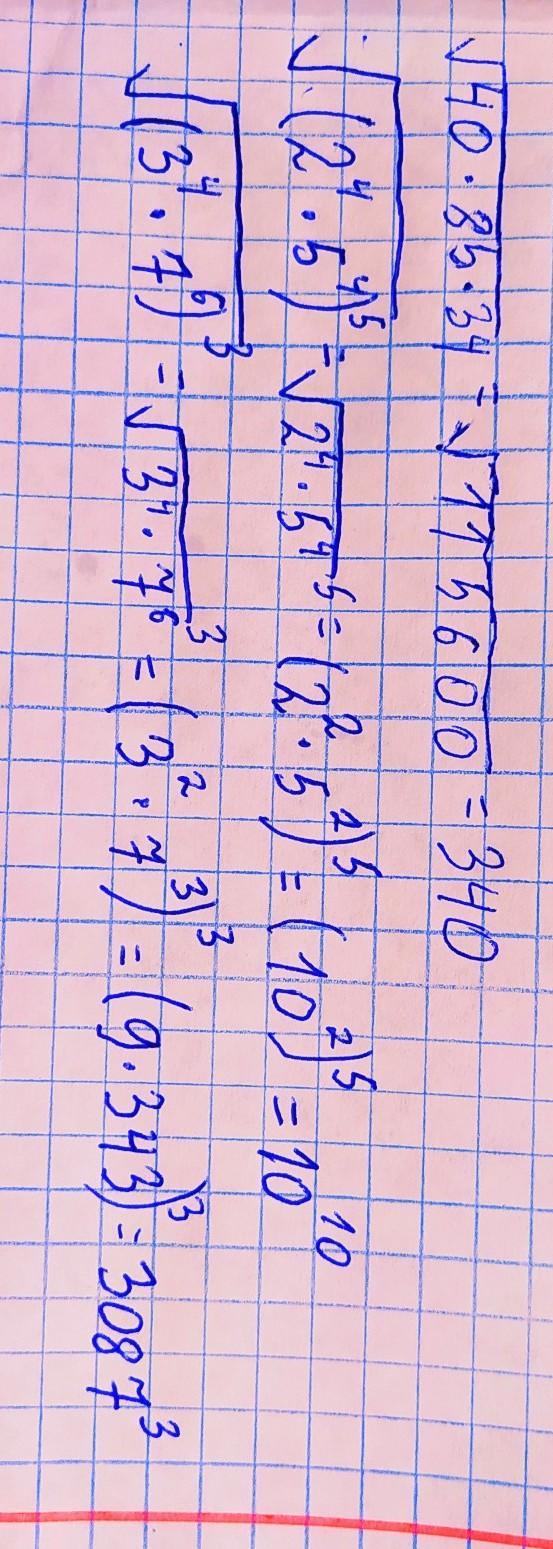 √40·85·34 = √115600 = 340
√(2⁴·5⁴)⁵ = √2⁴·5⁴⁵ = (2²·5²)⁵ = (10²)⁵ = 10¹⁰
√(3⁴·7⁶)³ = √3⁴·7⁶³ = (3²·7³)³ = (9·343)³ = 3087³